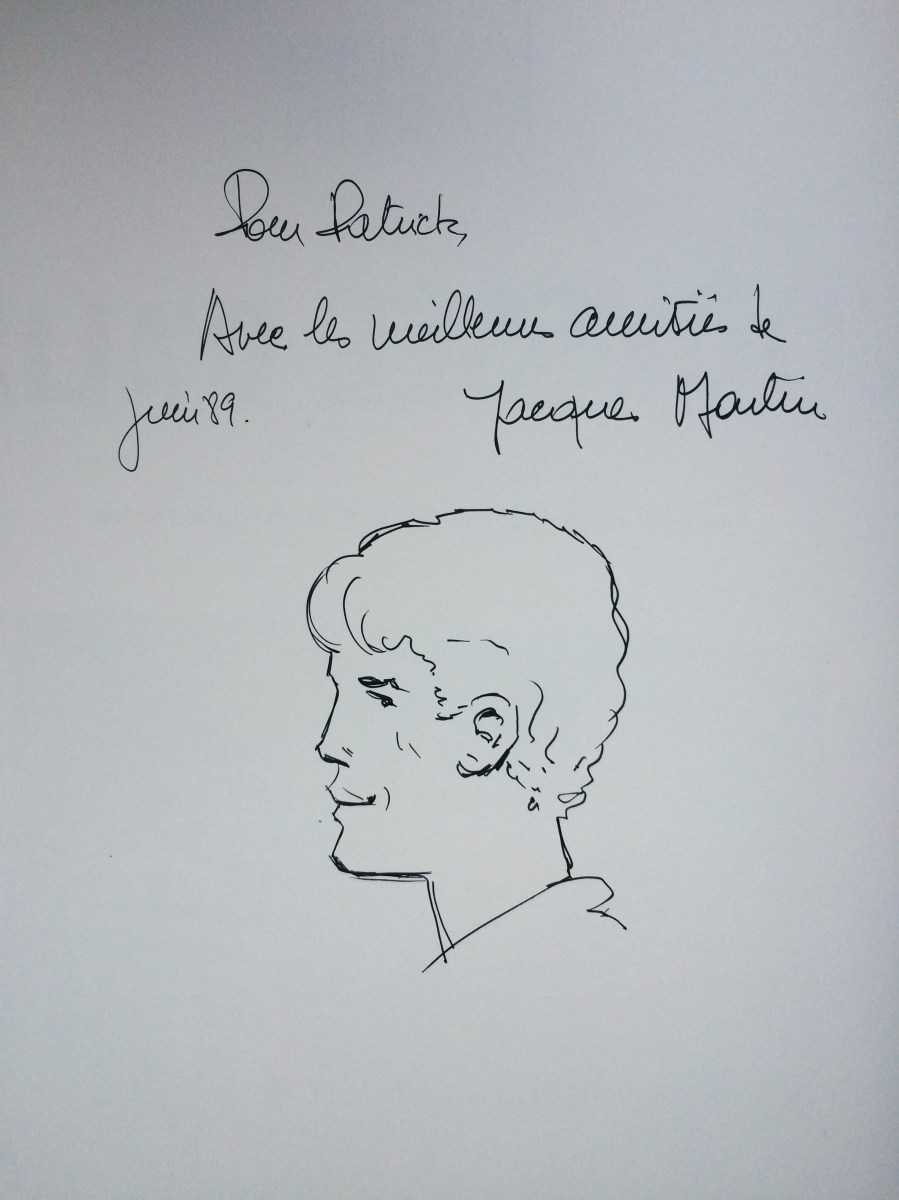 Pour Patrick,
Avec les meilleures amitiés de
juin 89.
Jacques Martin